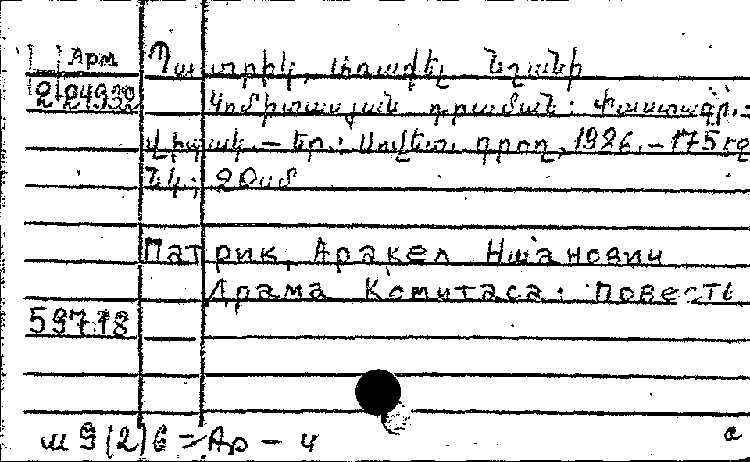 Арм Պատրիկ, Առաքել Նշանի
2 24932 Կոմիտասյան դրաման: Փաստագր.-
վիպակ. – Եր.: Սովետ. գրող, 1986. – 175 էջ
նկ.; 20սմ
Патрик, Аракел Ншанович
Драма Комитаса: Повесть
59718
ш 9(2)6 = Ар – 4
а